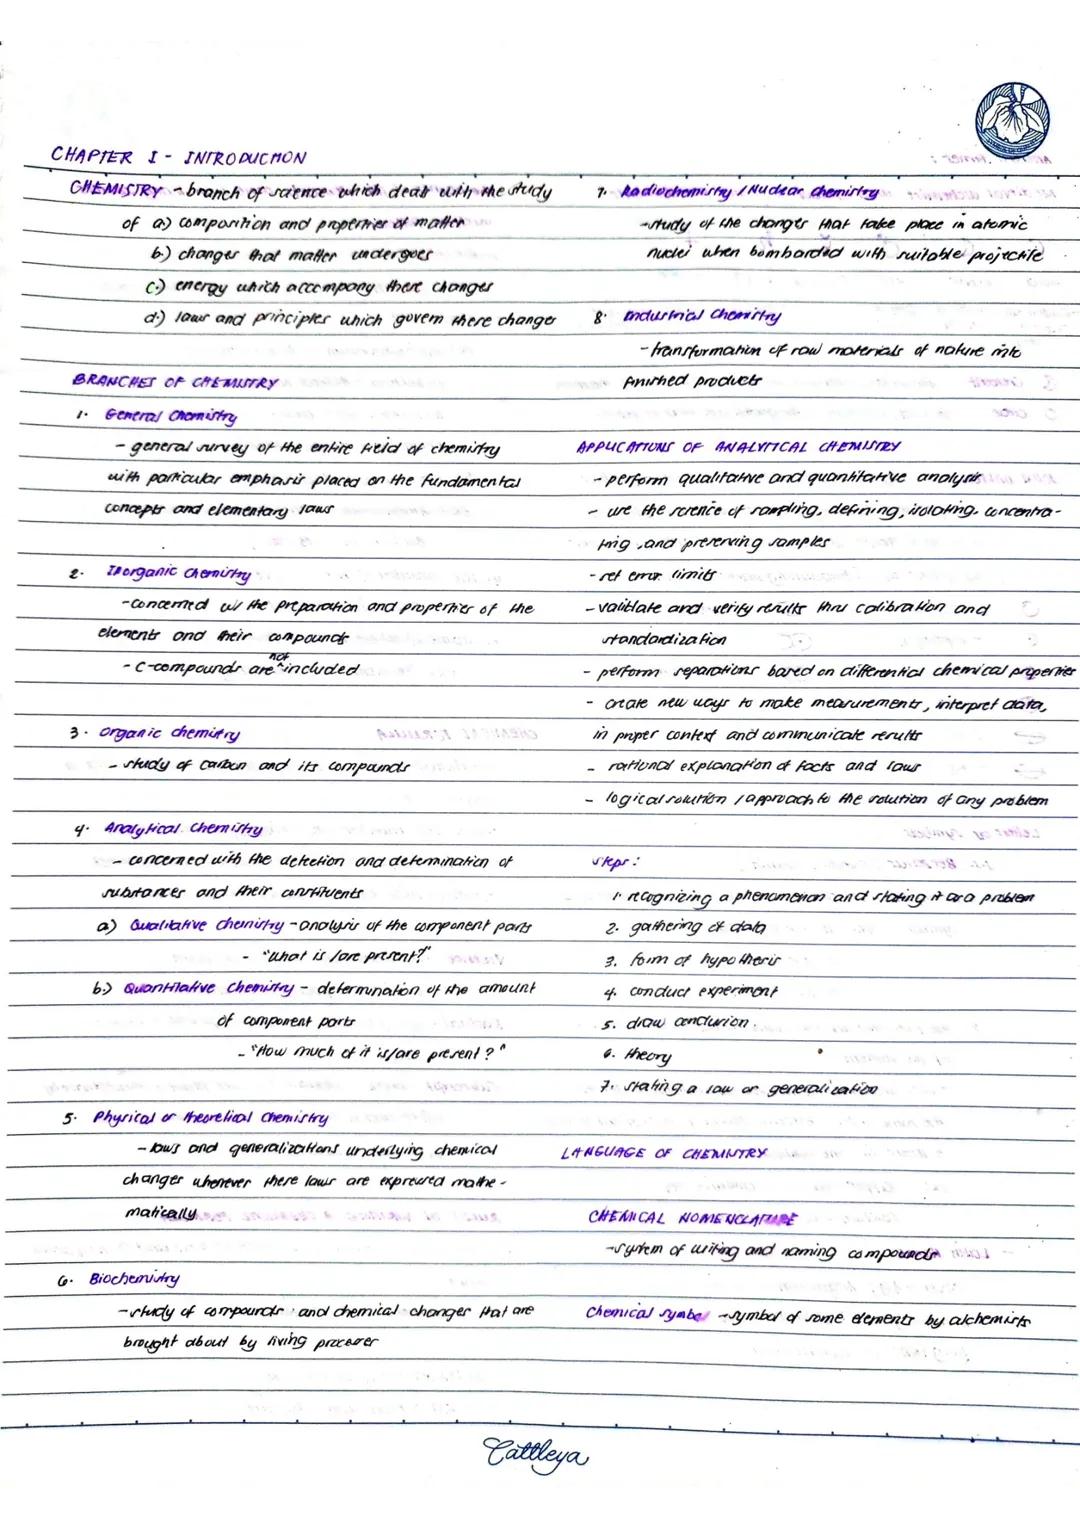 CHAPTER I - INTRODUCTION
CHEMISTRY - branch of science which deals with the study
of a.) composition and properties of matter
b.) changes that matter undergoes
c.) energy which accompany these changes
d.) laws and principles which govern these changes
BRANCHES OF CHEMISTRY
1. General Chemistry
- general survey of the entire field of chemistry
with particular emphasis placed on the fundamental
concepts and elementary laws
2. Inorganic Chemistry
- concerned w/ the preparation and properties of the
elements and their compounds
- C-compounds are not included
3. Organic chemistry
- study of carbon and its compounds
4. Analytical Chemistry
- concerned with the detection and determination of
substances and their constituents
a) Qualitative chemistry - analysis of the component parts
- "What is /are present?"
b.) Quantitative chemistry - determination of the amount
of component parts
- "How much of it is/are present?"
5. Physical or theoretical Chemistry
- laws and generalizations underlying chemical
changes whenever these laws are expressed mathe-
matically
6. Biochemistry
- study of compounds and chemical changes that are
brought about by living processes
7. Radiochemistry / Nuclear chemistry
- study of the changes that take place in atomic
nuclei when bombarded with suitable projectile
8. Industrial Chemistry
- transformation of raw materials of nature into
finished products
APPLICATIONS OF ANALYTICAL CHEMISTRY
- perform qualitative and quantitative analysis
- use the science of sampling, defining, isolating, concentra-
ting, and preserving samples
- set error limits
- validate and verify results thru calibration and
standardization
- perform separations based on differential chemical properties
- create new ways to make measurements, interpret data,
in proper context and communicate results
- rational explanation of facts and laws
- logical solution / approach to the solution of any problem
steps:
1. recognizing a phenomenon and stating it as a problem
2. gathering of data
3. form of hypothesis
4. conduct experiment
5. draw conclusion.
6. theory
7. stating a law or generalization
LANGUAGE OF CHEMISTRY
CHEMICAL NOMENCLATURE
- system of writing and naming compounds
Chemical symbol - symbol of some elements by alchemists
Cattleya